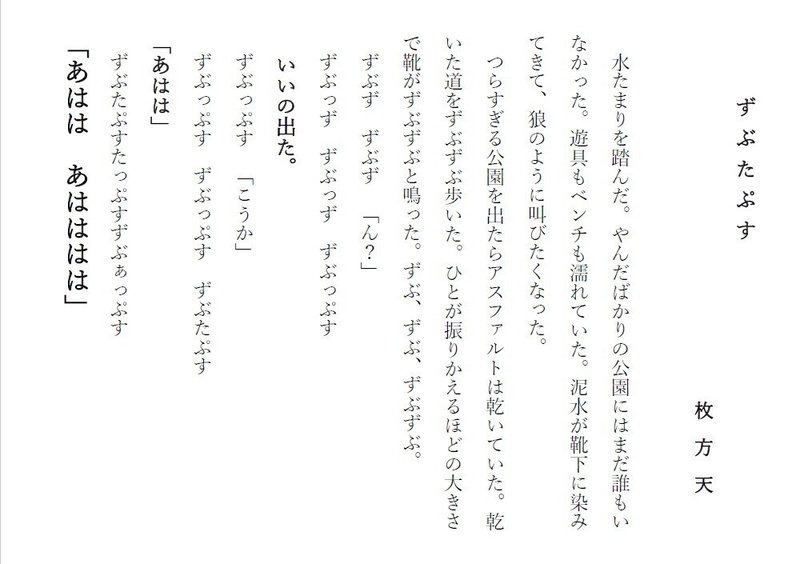 ずぶたぷす
枚方天
水たまりを踏んだ。やんだばかりの公園にはまだ誰もい
なかった。遊具もベンチも濡れていた。泥水が靴下に染み
てきて、狼のように叫びたくなった。
つらすぎる公園を出たらアスファルトは乾いていた。乾
いた道をずぶずぶ歩いた。ひとが振りかえるほどの大きさ
で靴がずぶずぶと鳴った。ずぶ、ずぶ、ずぶずぶ。
ずぶず　ずぶず　「ん？」
ずぶっず　ずぶっず　ずぶっぷす
いいの出た。
ずぶっぷす　「こうか」
ずぶっぷす　ずぶっぷす　ずぶたぷす
「あはは」
ずぶたぷすたっぷすずぶぁっぷす
「あはは　あはははは」